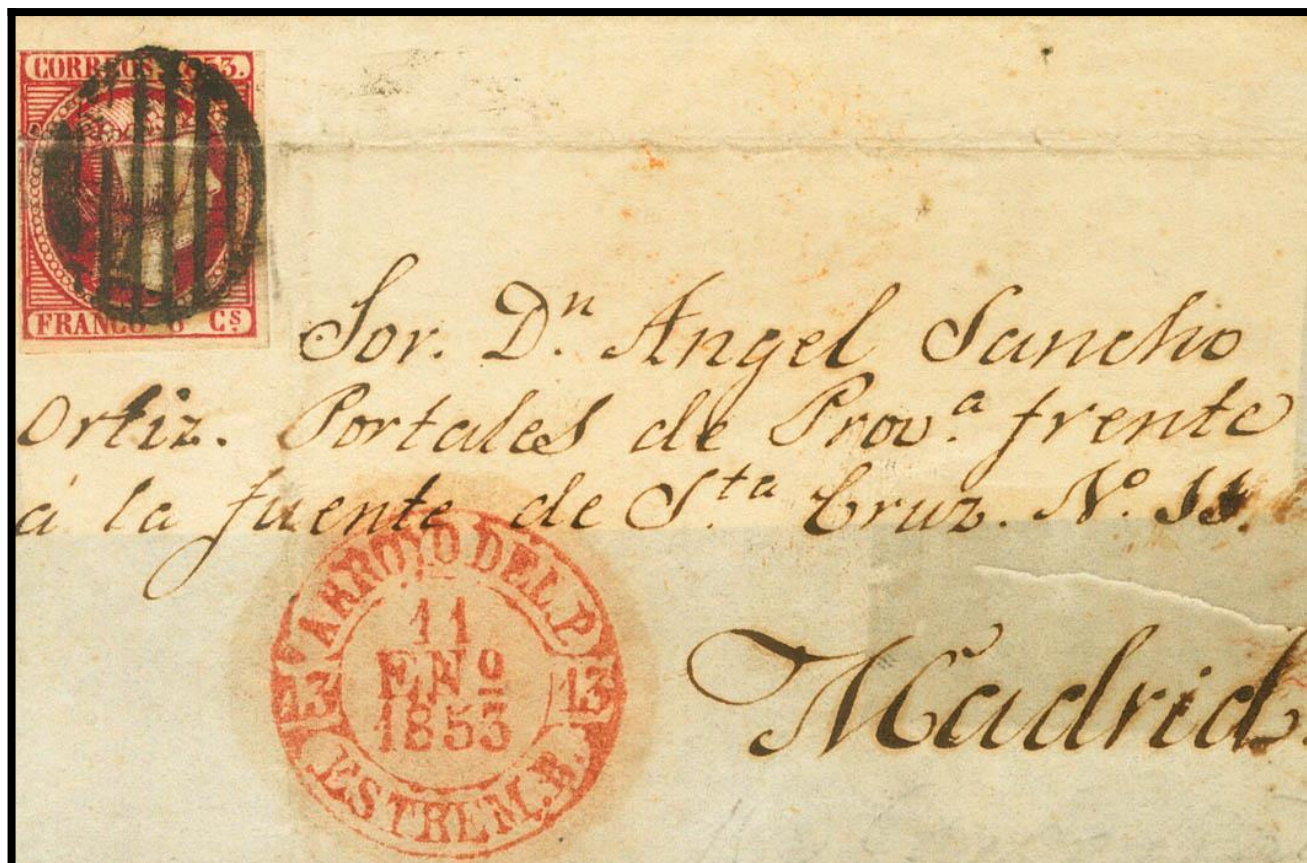 CORREOS 1853.
FRANCO 6 Cs
Sor. Dn. Angel Sancho
Ortiz. Portales de Prova. frente
á la fuente de Sta. Cruz. No. 11.
ARROYO DEL P.
11
ENº
1853
13 13
ESTREM.B.
Madrid.